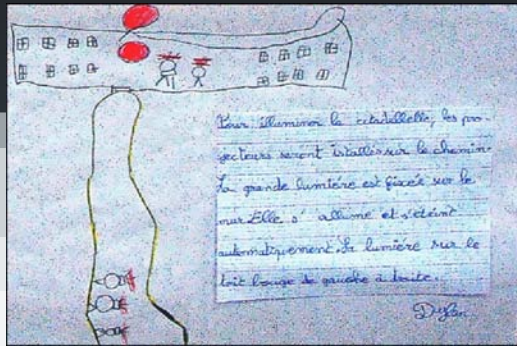 Pour illuminer la citadellelle, les pro-
jecteurs seront istallés sur le chemin.
La grande lumière est fixée sur le
mur. Elle s'allume et s'éteint
automatiquement. La lumière sur le
toit bouge de gauche à droite.
Dylan